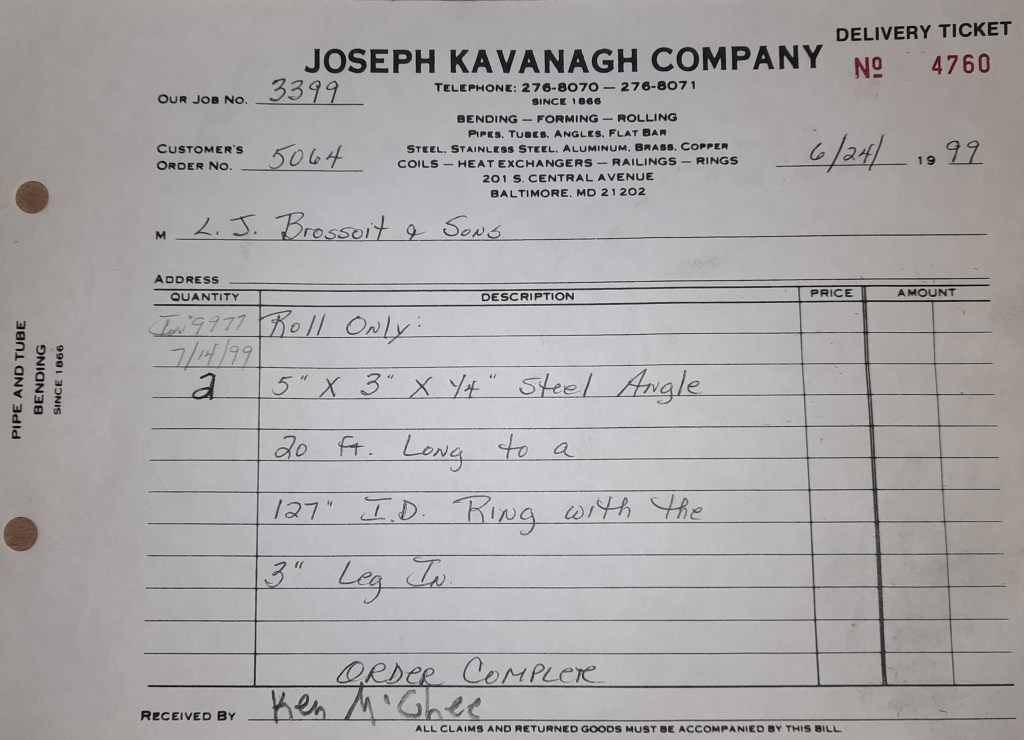 DELIVERY TICKET
JOSEPH KAVANAGH COMPANY
Nº 4760
TELEPHONE: 276-8070 — 276-8071
SINCE 1866
OUR JOB NO. 3399
BENDING — FORMING — ROLLING
PIPES, TUBES, ANGLES, FLAT BAR
STEEL, STAINLESS STEEL, ALUMINUM, BRASS, COPPER
CUSTOMER'S
ORDER NO. 5064
COILS — HEAT EXCHANGERS — RAILINGS — RINGS
6/24/ 19 99
201 S. CENTRAL AVENUE
BALTIMORE, MD 21202
M L. J. Brossoit & Sons
ADDRESS
QUANTITY DESCRIPTION PRICE AMOUNT
9977 Roll Only:
7/14/99
2 5" X 3" X 1/4" Steel Angle
20 ft. Long to a
127" I.D. Ring with the
3" Leg In.
ORDER COMPLETE
RECEIVED BY Ken McGhee
ALL CLAIMS AND RETURNED GOODS MUST BE ACCOMPANIED BY THIS BILL
PIPE AND TUBE
BENDING
SINCE 1866